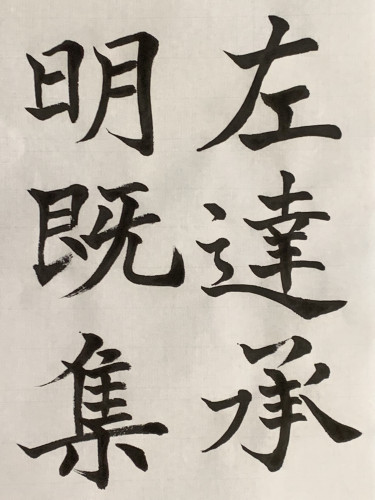 左達承
明既集